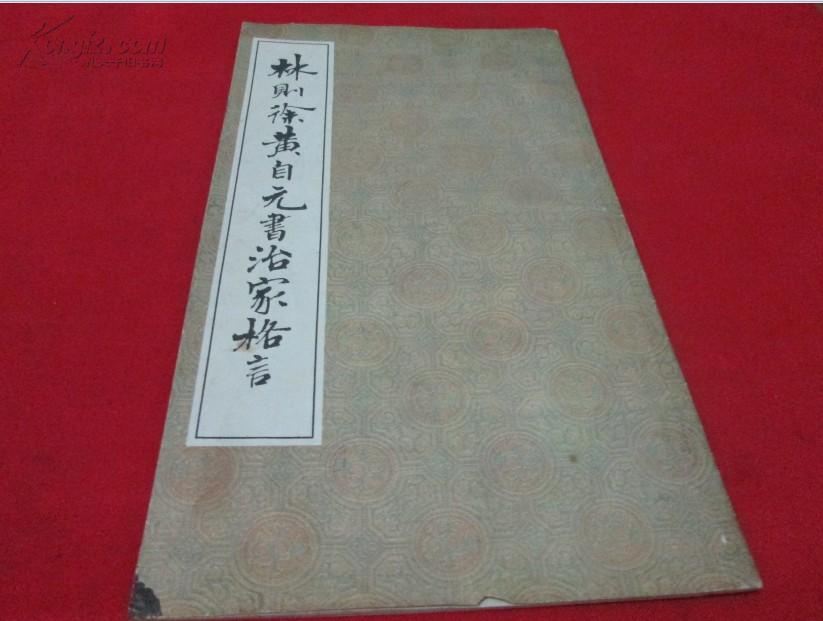 Kongfz.com
孔夫子旧书网
林則徐黄自元書治家格言